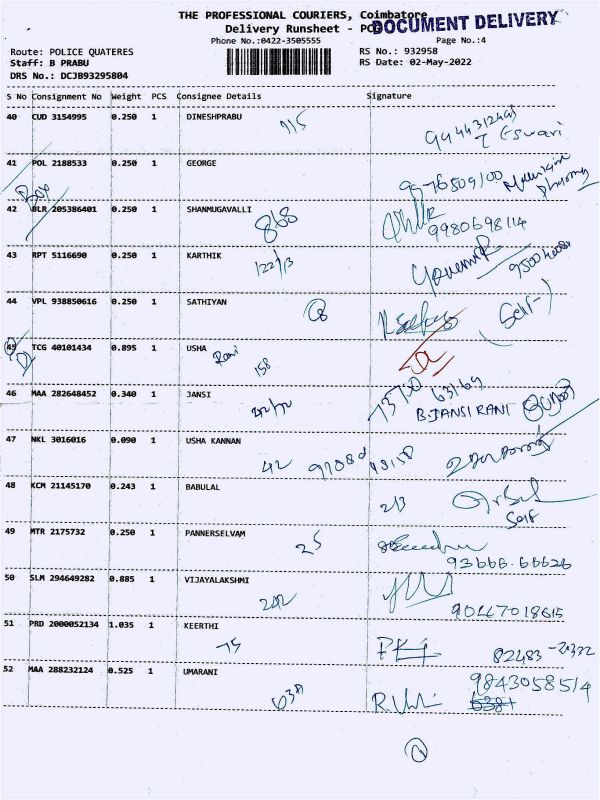 THE PROFESSIONAL COURIERS, Coimbatore
DOCUMENT DELIVERY
Delivery Runsheet - POD
Phone No.:0422-3505555 Page No.:4
Route: POLICE QUATERES RS No.: 932958
Staff: B PRABU RS Date: 02-May-2022
DRS No.: DCJB93295804
S No Consignment No Weight PCS Consignee Details Signature
40 CUD 3154995 0.250 1 DINESHPRABU
115
T Eswari
41 POL 2188533 0.250 1 GEORGE
Box
42 BLR 205386401 0.250 1 SHANMUGAVALLI
868 9980698114
43 RPT 5116690 0.250 1 KARTHIK
122/13
44 VPL 938850616 0.250 1 SATHIYAN
(Self)
45 TCG 40101434 0.895 1 USHA
Rani
158
46 MAA 282648452 0.340 1 JANSI
63169
B.JANSI RANI
47 NKL 3016016 0.090 1 USHA KANNAN
42
48 KCM 21145170 0.243 1 BABULAL
213
Self
49 MTR 2175732 0.250 1 PANNERSELVAM
25
93666.66626
50 SLM 294649282 0.885 1 VIJAYALAKSHMI
242
90447018615
51 PRD 2000052134 1.035 1 KEERTHI
75 82483-20322
52 MAA 288232124 0.525 1 UMARANI
9843058514
638